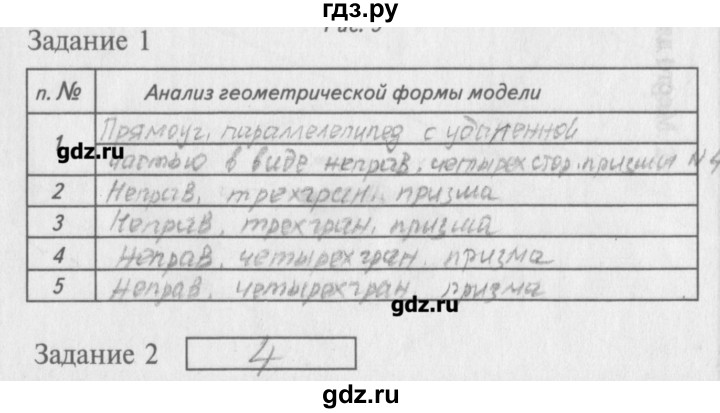 гдз.ру
Рис. 5
Задание 1
п. № Анализ геометрической формы модели
1 Прямоуг. параллелепипед с удаленной
gdz.ru
частью в виде неправ. четырехстор. призмы №4
2 Неправ. трехгран. призма
3 Неправ. трехгран. призма
4 Неправ. четырехгран. призма
5 Неправ. четырехгран. призма
gdz.ru
Задание 2 4
gdz.ru